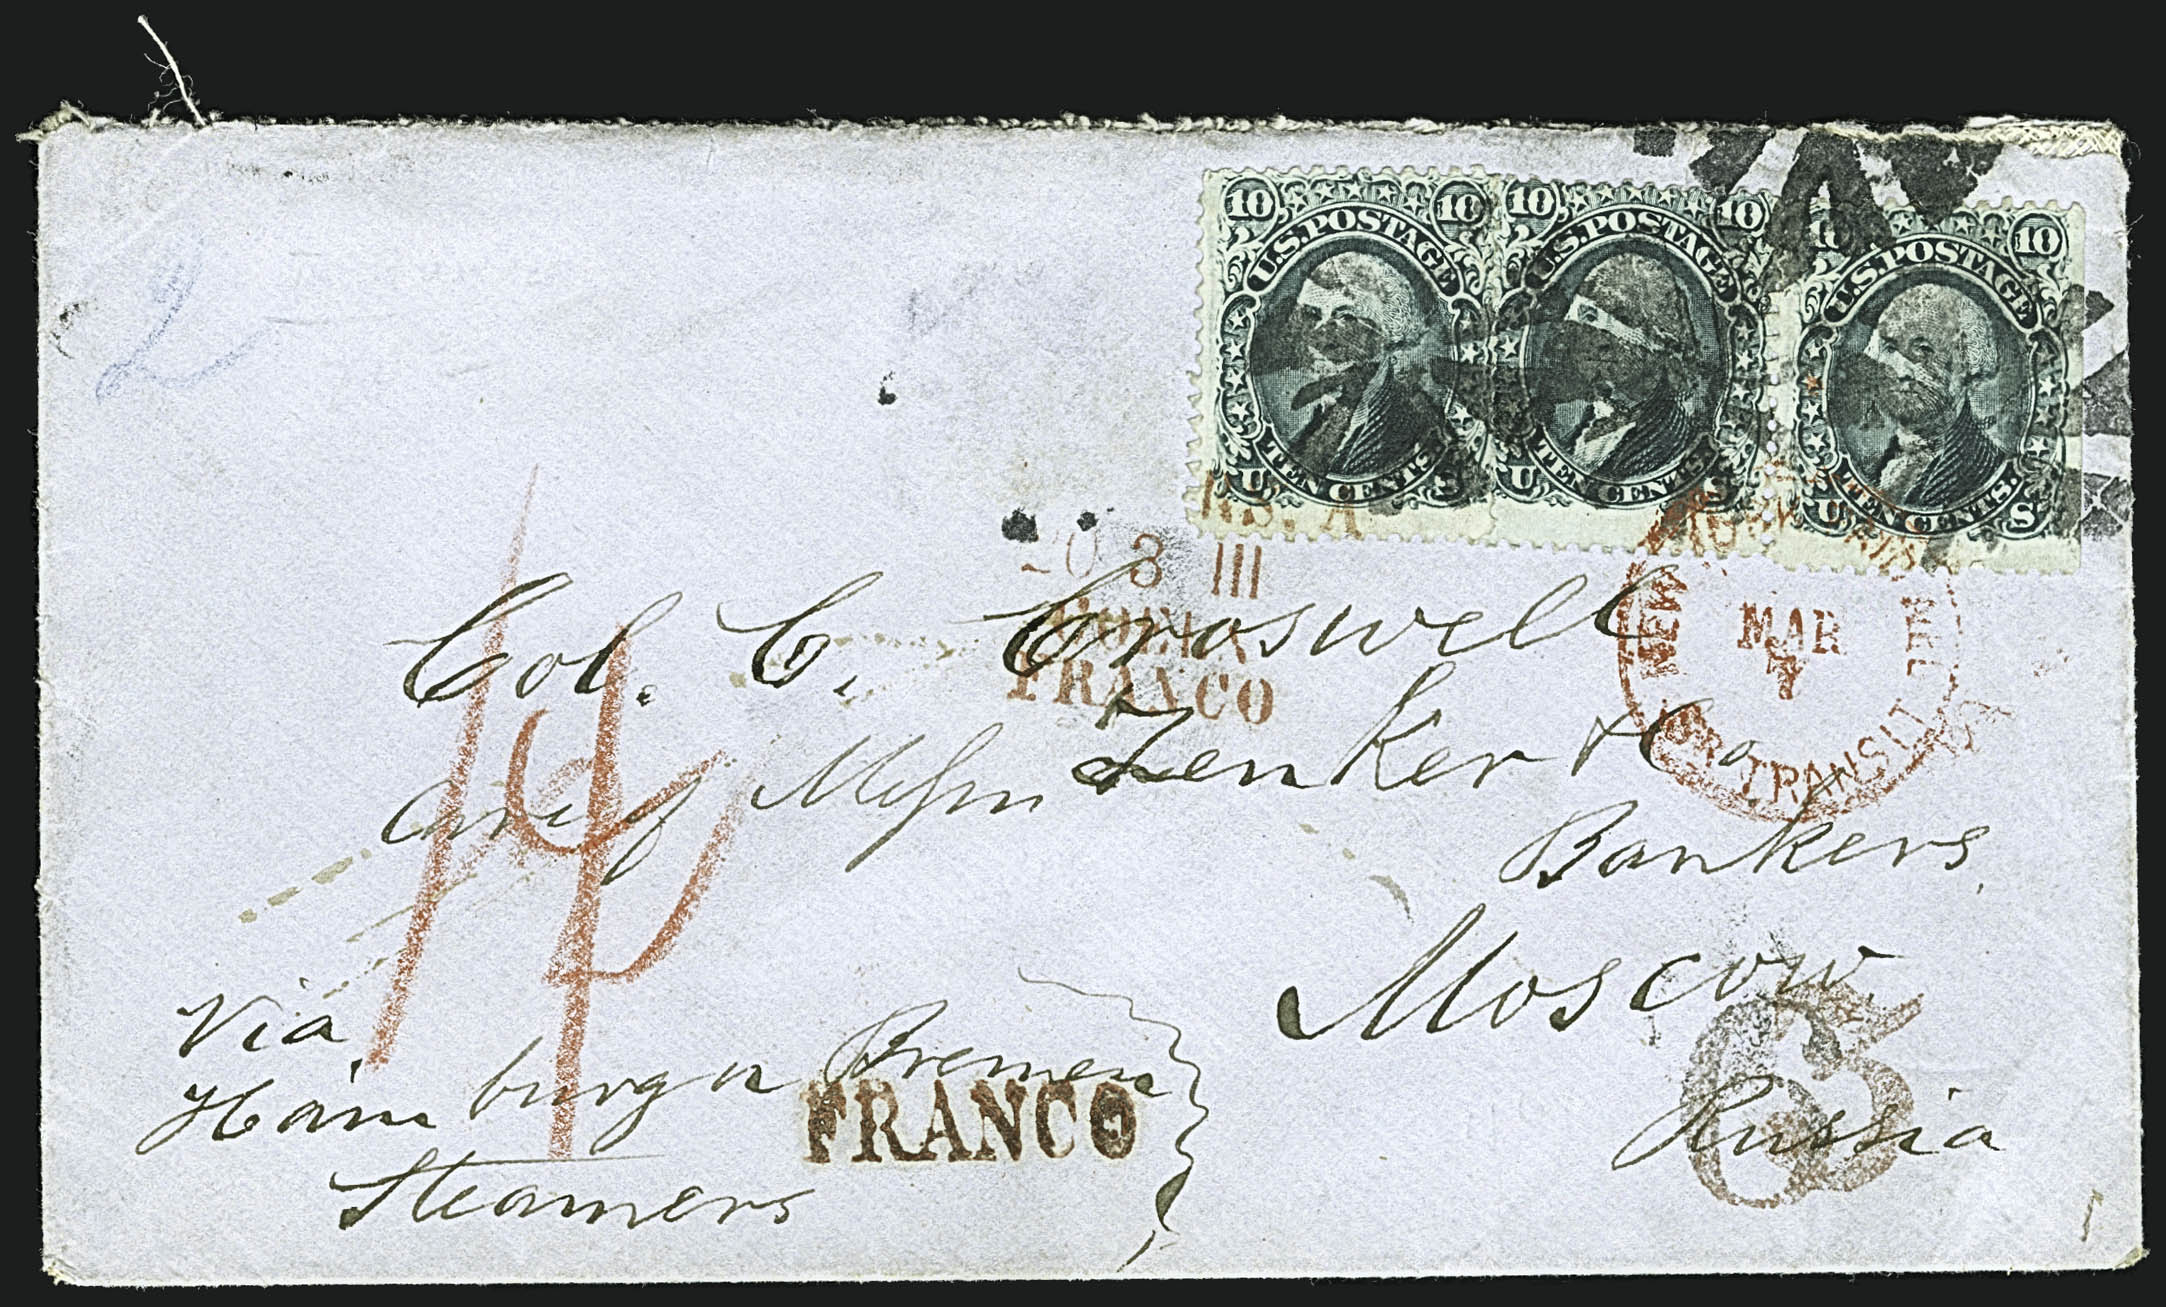 2
10 10
U.S. POSTAGE
TEN CENTS.
U S
10 10
U.S. POSTAGE
TEN CENTS.
U S
10
U.S. POSTAGE
TEN CENTS.
U S
3 III
FRANCO
NEW
MAR
7
BR TRANSIT
Col. C. Croswell
Care of Messrs Zenker & Co
Bankers
Moscow
Russia
Via
Hamburg or Bremen
Steamers
FRANCO